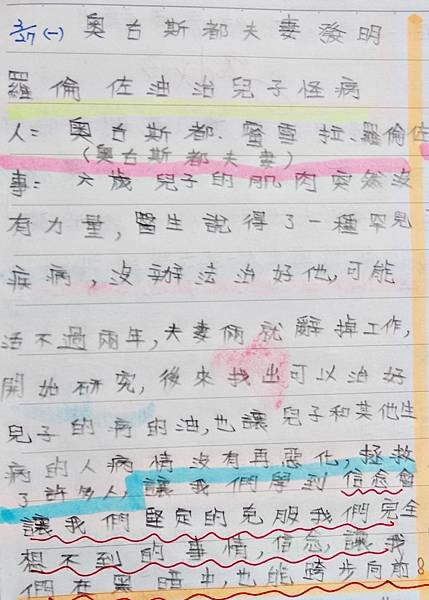 2/27 (一) 奧古斯都夫妻發明
羅倫佐油治兒子怪病
人: 奧古斯都.蜜雪拉.羅倫佐
(奧古斯都夫妻)
事: 六歲兒子的肌肉突然沒
有力量,醫生說得了一種罕見
疾病,沒辦法治好他,可能
活不過兩年,夫妻倆就辭掉工作,
開始研究,後來找出可以治好
兒子的病的油,也讓兒子和其他生
病的人病情沒有再惡化,拯救
了許多人,讓我們學到信念會
讓我們堅定的克服我們完全
想不到的事情,信念,讓我
們在黑暗中,也能跨步向前